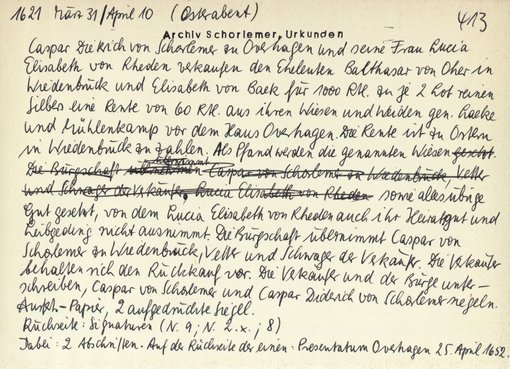 1621 März 31/April 10 (Osterabent) 413
Archiv Schorlemer, Urkunden
Caspar Dietrich von Schorlemer zu Overhagen und seine Frau Lucia
Elisabeth von Rheden verkaufen den Eheleuten Balthasar von Oher in
Wiedenbrück und Elisabeth von Baek für 1000 Rtl. zu je 2 Lot reinen
Silbers eine Rente von 60 Rtl. aus ihren Wiesen und Weiden gen. Laeke
und Mühlenkamp vor dem Haus Overhagen. Die Rente ist zu Ostern
in Wiedenbrück zu zahlen. Als Pfand werden die genannten Wiesen gesetzt.
Die Bürgschaft übernimmt Caspar von Schorlemer zu Wiedenbrück, Vetter
und Schwager der Verkäufer, Lucia Elisabeth von Rheden sowie alles übrige
Gut gesetzt, von dem Lucia Elisabeth von Rheden auch ihr Heiratgut und
Leibgeding nicht ausnimmt. Die Bürgschaft übernimmt Caspar von
Schorlemer zu Wiedenbrück, Vetter und Schwager der Verkäufer. Die Verkäufer
behalten sich den Rückkauf vor. Die Verkäufer und der Bürge unter-
schreiben, Caspar von Schorlemer und Caspar Diderich von Schorlemer siegeln.
Ausf.- Papier, 2 aufgedrückte Siegel.
Rückseite: Signaturen (N. 9; N. 2.x.; 8)
Dabei: 2 Abschriften. Auf der Rückseite der einen: Presentatum Overhagen 25. April 1652.